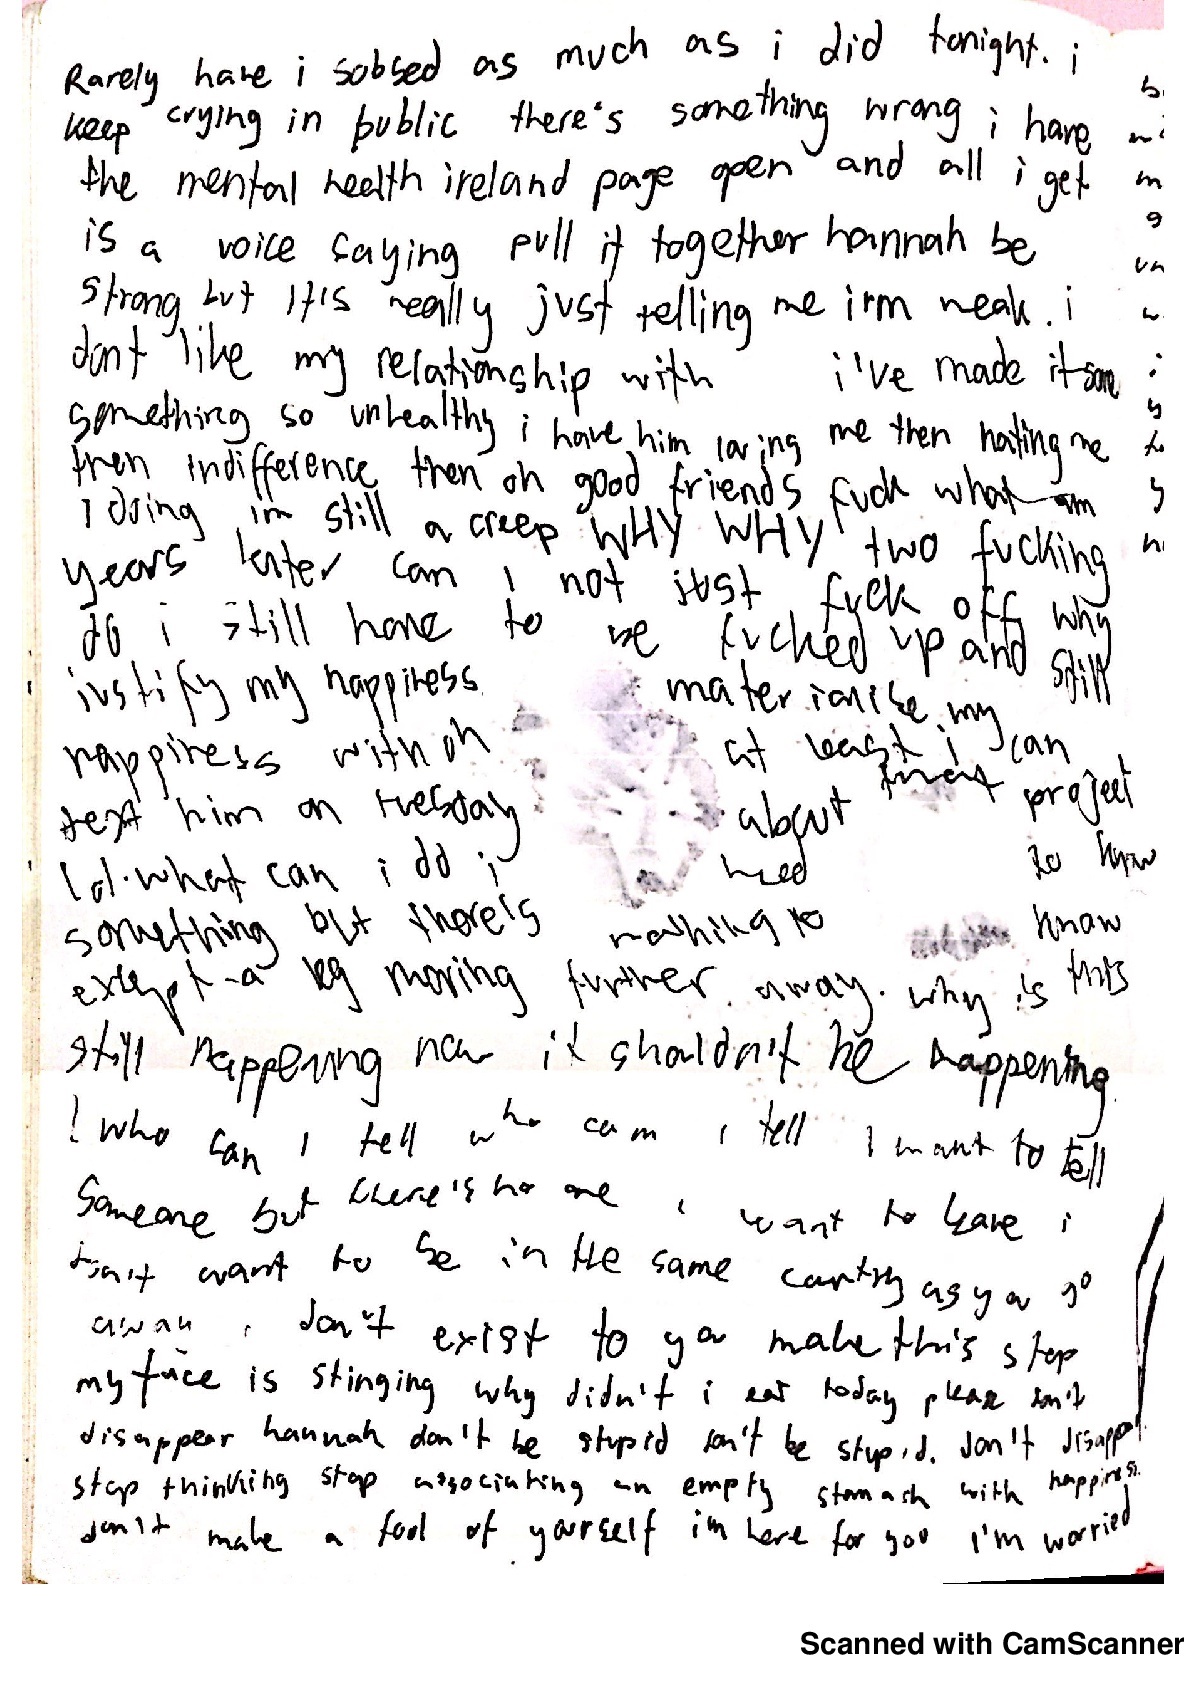 Rarely have i sobbed as much as i did tonight. i
keep crying in public there's something wrong i have
the mental health ireland page open and all i get
is a voice saying pull it together hannah be
strong but it's really just telling me i'm weak. i
don't like my relationship with i've made it some
something so unhealthy i have him loving me then hating me
then indifference then oh good friends fuck what am
I doing im still a creep WHY WHY two fucking
years later can i not just fuck off why
do i still have to be fucked up and still
justify my happiness materialise my
happiness with oh at least i can
text him on tuesday about that project
lol. what can i do i need to know
something but there's nothing to know
except a moving further away. why is this
still happening now it shouldn't be happening
! who can I tell who can i tell I want to tell
Someone but there's no one i want to leave i
don't want to be in the same country as you go
away i don't exist to you make this stop
my face is stinging why didn't i eat today please don't
disappear hannah don't be stupid don't be stupid. don't disappear
stop thinking stop associating an empty stomach with happiness.
don't make a fool of yourself im here for you I'm worried
Scanned with CamScanner